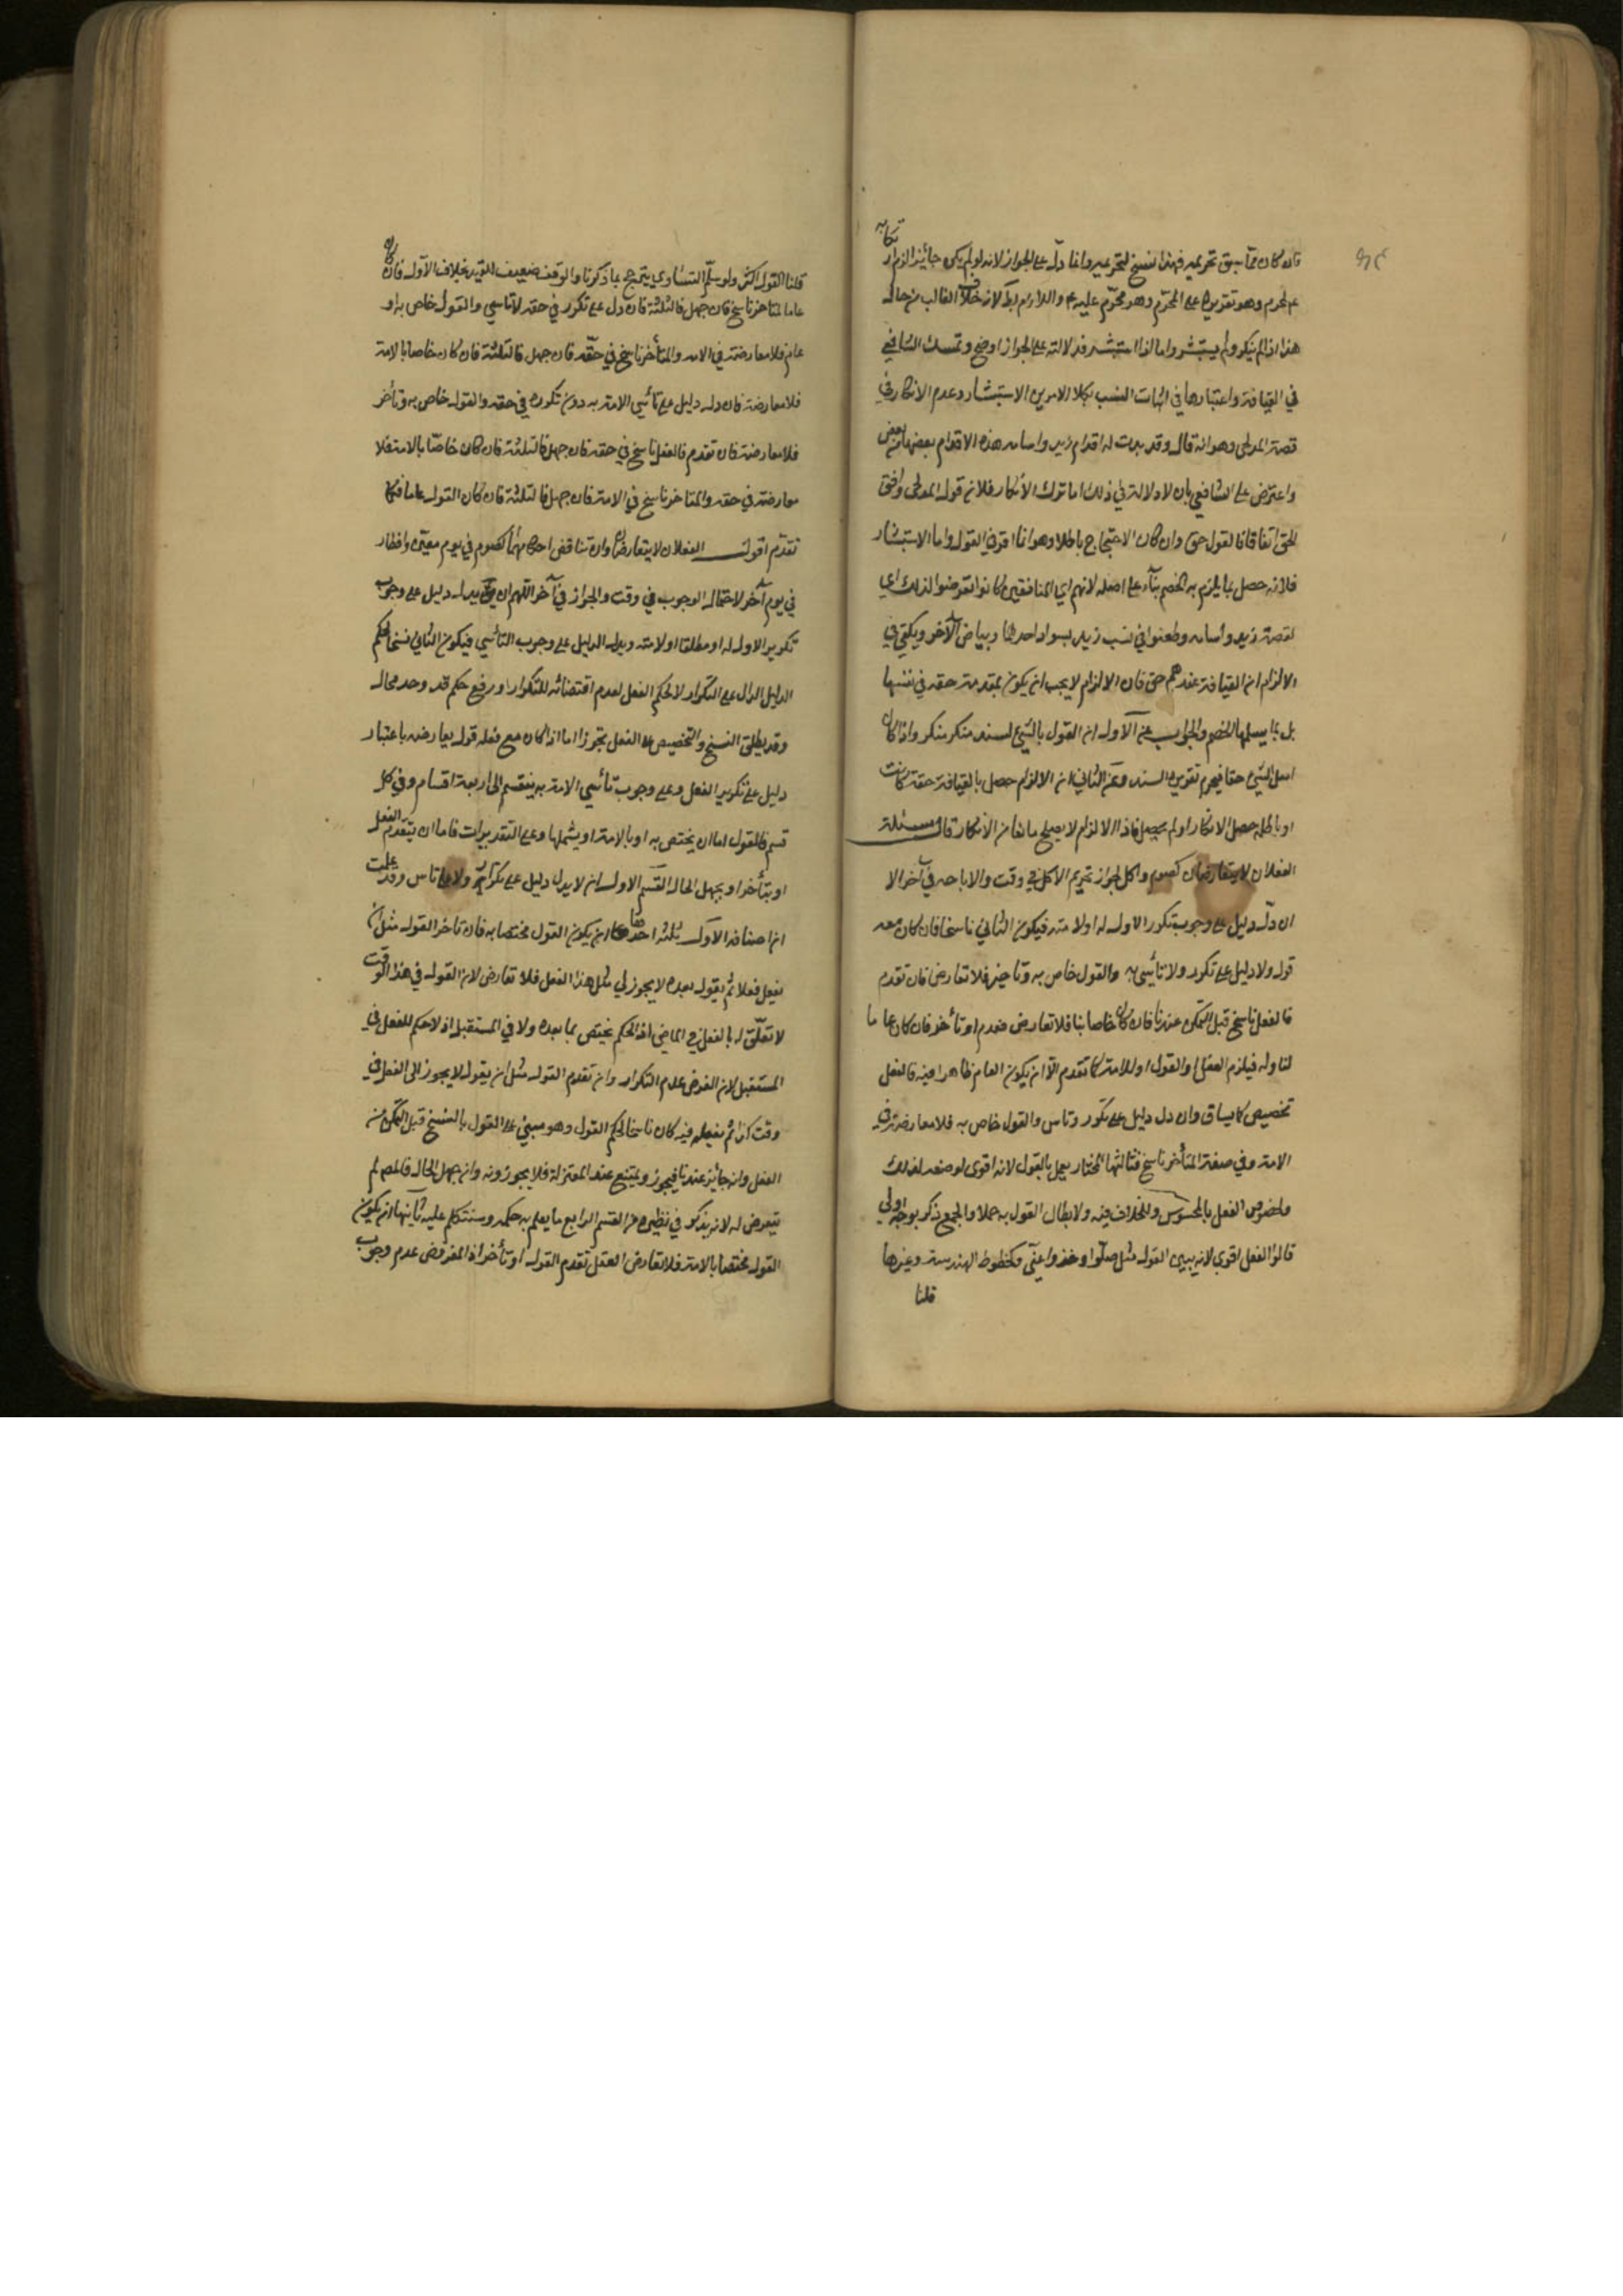 فان كان مما سبق تحريمه فهذا نسخ لتحريمه وانما دل على الجواز لانه لو لم يكن جائزا لزم ارتكابه
عم لمحرم وهو تقريره على المحرم وهو محرم عليه عم واللازم بط لانه خلاف الغالب من حاله
هذا اذا لم ينكر ولم يستبشر واما اذا استبشر فدلالته على الجواز اوضح وتمسك الشافعي
في القيافة واعتبارها في اثبات النسب بكلا الامرين الاستبشار وعدم الانكار في
قصة المدلجي وهو انه قال وقد بدت له اقدام زيد واسامه هذه الاقدام بعضها من بعض
واعترض على الشافعي بان لا دلالة في ذلك اما ترك الانكار فلان قول المدلجي وافق
الحق اتفاقا فالقول حق وان كان الاحتجاج باطلا وهو انما اقر في القول واما الاستبشار
فلانه حصل بما يلزم به الخصم بناء على اصله لانهم اي المنافقين كانوا تعرضوا لذلك اي
لقصة زيد واسامه وطعنوا في نسب زيد بسواد احدهما وبياض الآخر ويكفي في
الالزام ان القيافة عندهم حق فان الالزام لا يجب ان يكون بمقدمة حقه في نفسها
بل بما يسلمها الخصم والجواب عن الاول ان القول بالشيء لسند منكر منكر واذا كان
اصل الشيء حقا فيحرم تقرير السند وعن الثاني ان الالزام حصل بالقيافة حقة كانت
او باطلة حصل الانكار او لم يحصل فاذا الالزام لا يصلح مانعا من الانكار قال مسئلة
الفعلان لا يتعارضان كصوم واكل لجواز تحريم الاكل في وقت والاباحه في آخر الا
ان دل دليل على وجوب تكرر الاول له او لامته فيكون الثاني ناسخا فان كان معه
قول ولا دليل على تكرر ولا تأسي به والقول خاص به وتاخير فلا تعارض فان تقدم
فالفعل ناسخ قبل التمكن عندنا فان كان خاصا بنا فلا تعارض تقدم او تأخر فان كان عاما
لنا وله فيلزم الفعل والقول له وللامة كما تقدم الا ان يكون العام ظاهرا فيه فالفعل
تخصيص كما سياتي وان دل دليل على تكرر وتاس والقول خاص به فلا معارضة في
الامة وفي حقه المتأخر ناسخ فثالثها المختار يعمل بالقول لانه اقوى لوضعه لذلك
ولخصوص الفعل بالمحسوس وللخلاف فيه ولابطال القول به جملا والجمع ذكر بوجه اولى
قالوا الفعل اقوى لانه يبين القول مثل صلوا وخذوا عني وكخطوط الهندسة وغيرها
قلنا
قلنا القول اكثر ولو سلم التساوي يترجح بما ذكرنا والوقف ضعيف للتعبد بخلاف الاول فان كان
عاما لمتاخر ناسخ فان جهل فالثلثة فان دل على تكرر في حقه لا تاسي والقول خاص به او
عام فلا معارضة في الامة والمتأخر ناسخ في حقه فان جهل فالثلثة فان كان خاصا بالامة
فلا معارضة فان دل دليل على تأسي الامة به دون تكرره في حقه والقول خاص به وتأخر
فلا معارضة فان تقدم فالفعل ناسخ في حقه فان جهل فالثلثة فان كان خاصا بالامة فلا
معارضة في حقه والمتاخر ناسخ في الامة فان جهل فالثلثة فان كان القول عاما فكما
تقدم اقول الفعلان لا يتعارضان وان تناقض احكامهما كصوم في يوم معين وافطار
في يوم آخر لاحتمال الوجوب في وقت والجواز في آخر اللهم ان يدل دليل على وجوب
تكرير الاول له او مطلقا او لامته ويدل الدليل على وجوب التأسي فيكون الثاني نسخا لحكم
الدليل الدال على التكرار لا لحكم الفعل لعدم اقتضائه للتكرار ورفع حكم قد وجد محال
وقد يطلق النسخ والتخصيص على الفعل تجوزا اما اذا كان مع فعله قول يعارضه باعتبار
دليل على تكرير الفعل وعلى وجوب تأسي الامة به ينقسم الى اربعة اقسام وفي كل
قسم فالقول اما ان يختص به او بالامة او يشملها وعلى التقديرات فاما ان يتقدم الفعل
او يتأخر او يجهل الحال القسم الاول ان لا يدل دليل على تكرار ولا على تاس وقد علمت
ان اصنافه الاول ثلثه احدها ان يكون القول مختصا به فان تاخر القول مثل ان
يفعل فعلا ثم يقول بعده لا يجوز لي مثل هذا الفعل فلا تعارض لان القول في هذا الوقت
لا تعلق له بالفعل في الماضي اذ الحكم يختص بما بعده ولا في المستقبل اذ لا حكم للفعل في
المستقبل لان الفرض عدم التكرار وان تقدم القول مثل ان يقول لا يجوز لي الفعل في
وقت كذا ثم يفعله فيه كان ناسخا لحكم القول وهو مبني على القول بالنسخ قبل التمكن من
الفعل وانه جائز عندنا فيجوز ويمتنع عند المعتزلة فلا يجوزونه وان جهل الحال فالمص لم
يتعرض له لانه يذكر في نظيره من القسم الرابع ما يعلم به حكمه وسنتكلم عليه ثانيها ان يكون
القول مختصا بالامة فلا تعارض الفعل تقدم القول او تأخر اذ المفروض عدم وجوب